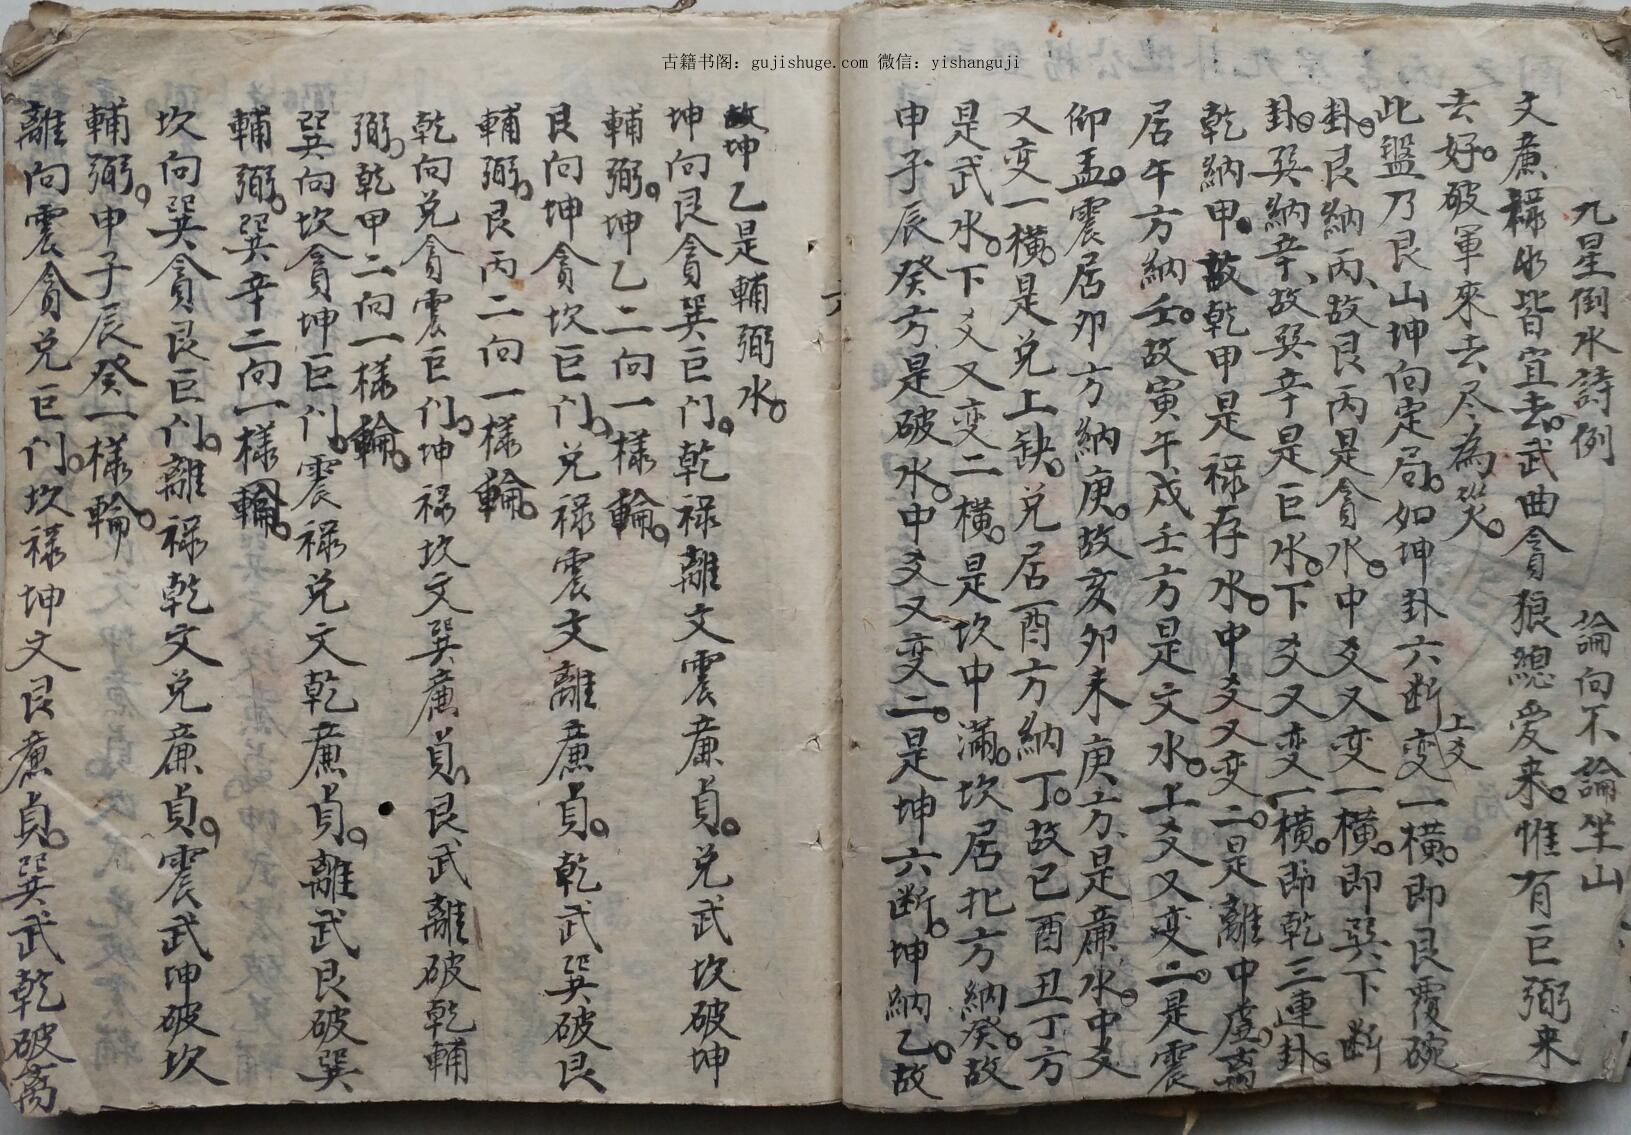 古籍书阁：gujishuge.com 微信：yishanguji
九星倒水詩例 論向不論坐山
文廉禄水皆宜去。武曲貪狼總爱来。惟有巨弼来
去好。破軍來去尽為災。
此盤乃艮山坤向定局。如坤卦六断上爻变一横。即艮覆碗
卦。艮納丙、故艮丙是貪水。中爻又变一横。即巽下断
卦。巽納辛、故巽辛是巨水。下爻又变一横。即乾三連卦。
乾納甲。故乾甲是禄存水。中爻又变二。是離中虚。离
居午方納壬。故寅午戌壬方是文水。上爻又变二。是震
仰盂。震居卯方納庚。故亥卯未庚方是廉水。中爻
又变一横。是兑上缺。兑居酉方納丁。故巳酉丑丁方
是武水。下爻又变二横。是坎中滿。坎居北方納癸。故
申子辰癸方是破水。中爻又变二。是坤六断。坤納乙。故
六
故坤乙是輔弼水。
坤向艮貪巽巨门。乾禄離文震廉貞。兑武坎破坤
輔弼。坤乙二向一樣輪。
艮向坤貪坎巨门。兑禄震文離廉貞。乾武巽破艮
輔弼。艮丙二向一樣輪。
乾向兑貪震巨门。坤禄坎文巽廉貞。艮武離破乾輔
弼。乾甲二向一樣輪。
巽向坎貪坤巨门。震禄兑文乾廉貞。離武艮破巽
輔弼。巽辛二向一樣輪。
坎向巽貪艮巨门。離禄乾文兑廉貞。震武坤破坎
輔弼。申子辰癸一樣輪。
離向震貪兑巨门。坎禄坤文艮廉貞。巽武乾破离